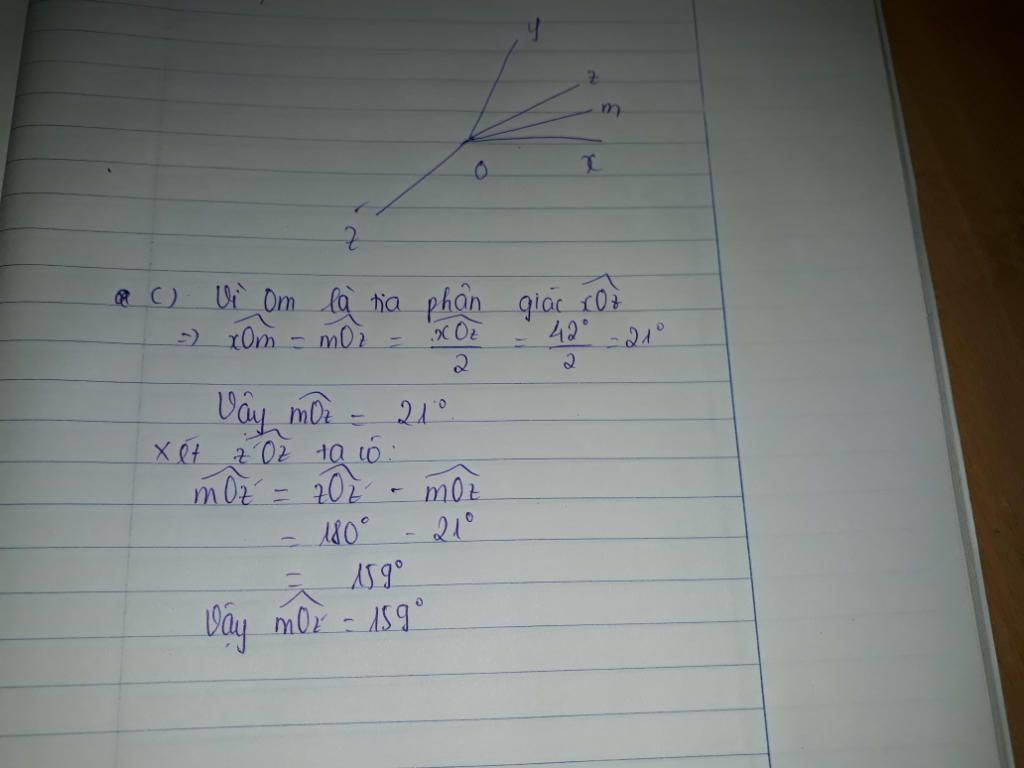 y
z
m
O
x
z'
c) Vì Om là tia phân giác xOz
=> xOm = mOz = xOz/2 = 42°/2 = 21°
Vậy mOz = 21°
Xét z'Oz ta có:
mOz' = zOz' - mOz
= 180° - 21°
= 159°
Vậy mOz' = 159°